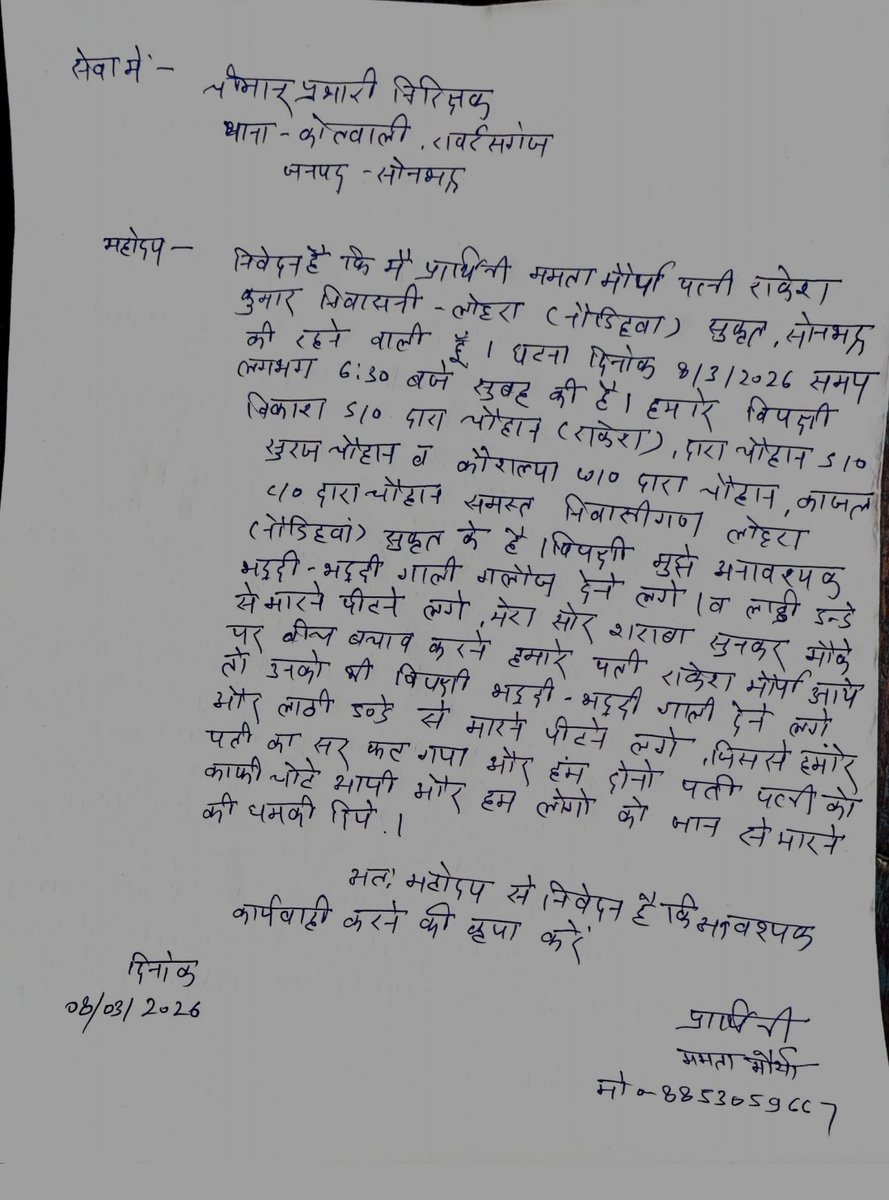 सेवा में :-
श्रीमान् प्रभारी निरिक्षक
थाना - कोतवाली , रावर्टसगंज
जनपद - सोनभद्र
महोदय -
निवेदन है कि मैं प्रार्थिनी ममता मौर्या पत्नी राकेश
कुमार निवासनी - लोहरा (नौडिहवा) सुकृत , सोनभद्र
की रहने वाली हूँ । घटना दिनांक 8/3/2026 समय
लगभग 6:30 बजे सुबह की है । हमारे विपक्षी
विकाश S/0 दारा चौहान (राकेश) , दारा चौहान S/0
सुरज चौहान व कौशल्या W/0 दारा चौहान , काजल
c/o दारा चौहान समस्त निवासीगण लोहरा
(नौडिहवां) सुकृत के है । विपक्षी मुझे अनावश्यक
भद्ददी - भद्ददी गाली गलौज देने लगे । व लाठ्ठी डन्डे
से मारने पीटने लगे , मेरा सोर शराबा सुनकर मौके
पर बीच बचाव करने हमारे पती राकेश मौर्या आये
तो उनको भी विपक्षी भद्ददी - भद्ददी गाली देने लगे
और लाठी डन्डे से मारने पीटने लगे , जिससे हमारे
पती का सर कट गया और हंम दोनो पती पत्नी को
काफी चोटे आयी और हम लोगो को जान से मारने
की धमकी दिये . ।
अतः महोदय से निवेदन है कि आवश्यक
कार्यवाही करने की कृपा करें
दिनांक
08/03/2026
प्रार्थिनी
ममता मौर्या
मो०-8853059667